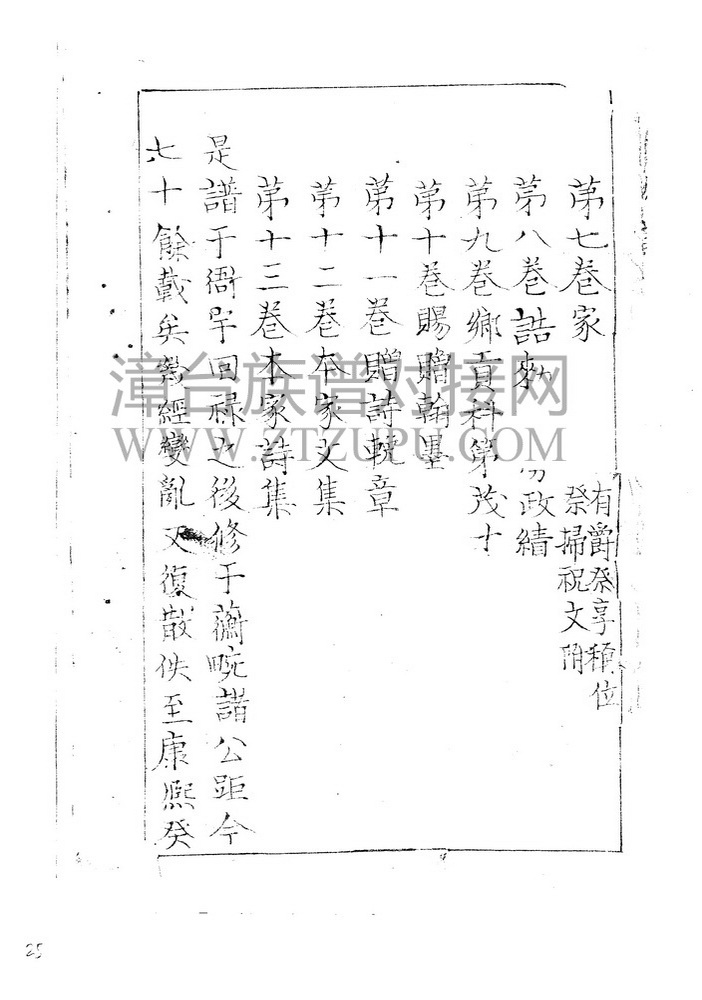 第七卷家
有爵祭享稱位
祭掃祝文附
第八卷誥勅 政績
第九卷鄉貢科第茂才
第十卷賜贈翰墨
第十一卷贈詩輓章
第十二卷本家文集
第十三卷本家詩集
是譜于 回祿之後修于 畹諸公距今
七十餘載矣 經變亂又復散佚至康熙癸
漳台族谱对接网
WWW.ZTZUPU.COM
25